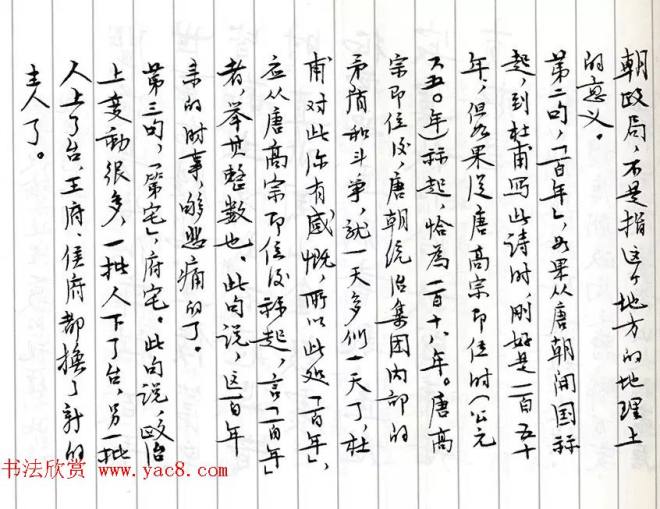 朝政局，不是指这个地方的地理上
的意义。
第二句，「百年」，如果从唐朝开国算
起，到杜甫写此诗时，刚好是一百五十
年，但如果从唐高宗即位时（公元
六五〇年）算起，恰为一百十八年。唐高
宗即位后，唐朝统治集团内部的
矛盾和斗争，就一天多似一天了，杜
甫对此深有感慨，所以此处「百年」，
应从唐高宗即位后算起，言「百年」
者，举其整数也。此句说，这一百年
来的时事，够悲痛的了。
第三句，「第宅」，府宅。此句说，政治
上变动很多，一批人下了台，另一批
人上了台，王府、侯府都换了新的
主人了。
书法欣赏 www.yac8.com